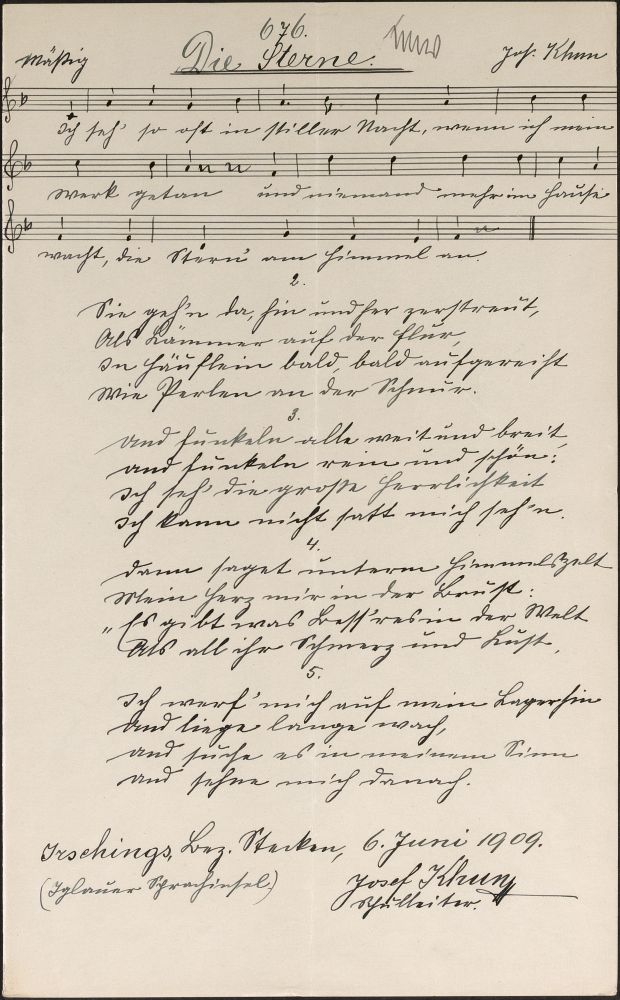 676.
Mäßig
Die Sterne.
Jos. Khun
Ich seh' so oft in stiller Nacht, wenn ich mein
Werk getan und niemand mehr im Hause
wacht, die Stern' am Himmel an.
2.
Sie geh'n da, hin und her zerstreut,
Als Lämmer auf der Flur,
In Häuflein bald, bald aufgereiht
Wie Perlen an der Schnur.
3.
Und funkeln alle weit und breit,
und funkeln rein und schön:
Ich seh' die große Herrlichkeit
Ich kann nicht satt mich seh'n.
4.
Dann saget unterm Himmelszelt
Mein Herz mir in der Brust:
"Es gibt was Bess'res in der Welt
Als all ihr Schmerz und Lust,
5.
Ich werf' mich auf mein Lager hin
Und liege lange wach,
und suche es in meinem Sinn
und sehne mich danach.
Irschings, Bez. Stecken, 6. Juni 1909.
(Iglauer Sprachinsel)
Josef Khun
Schulleiter.